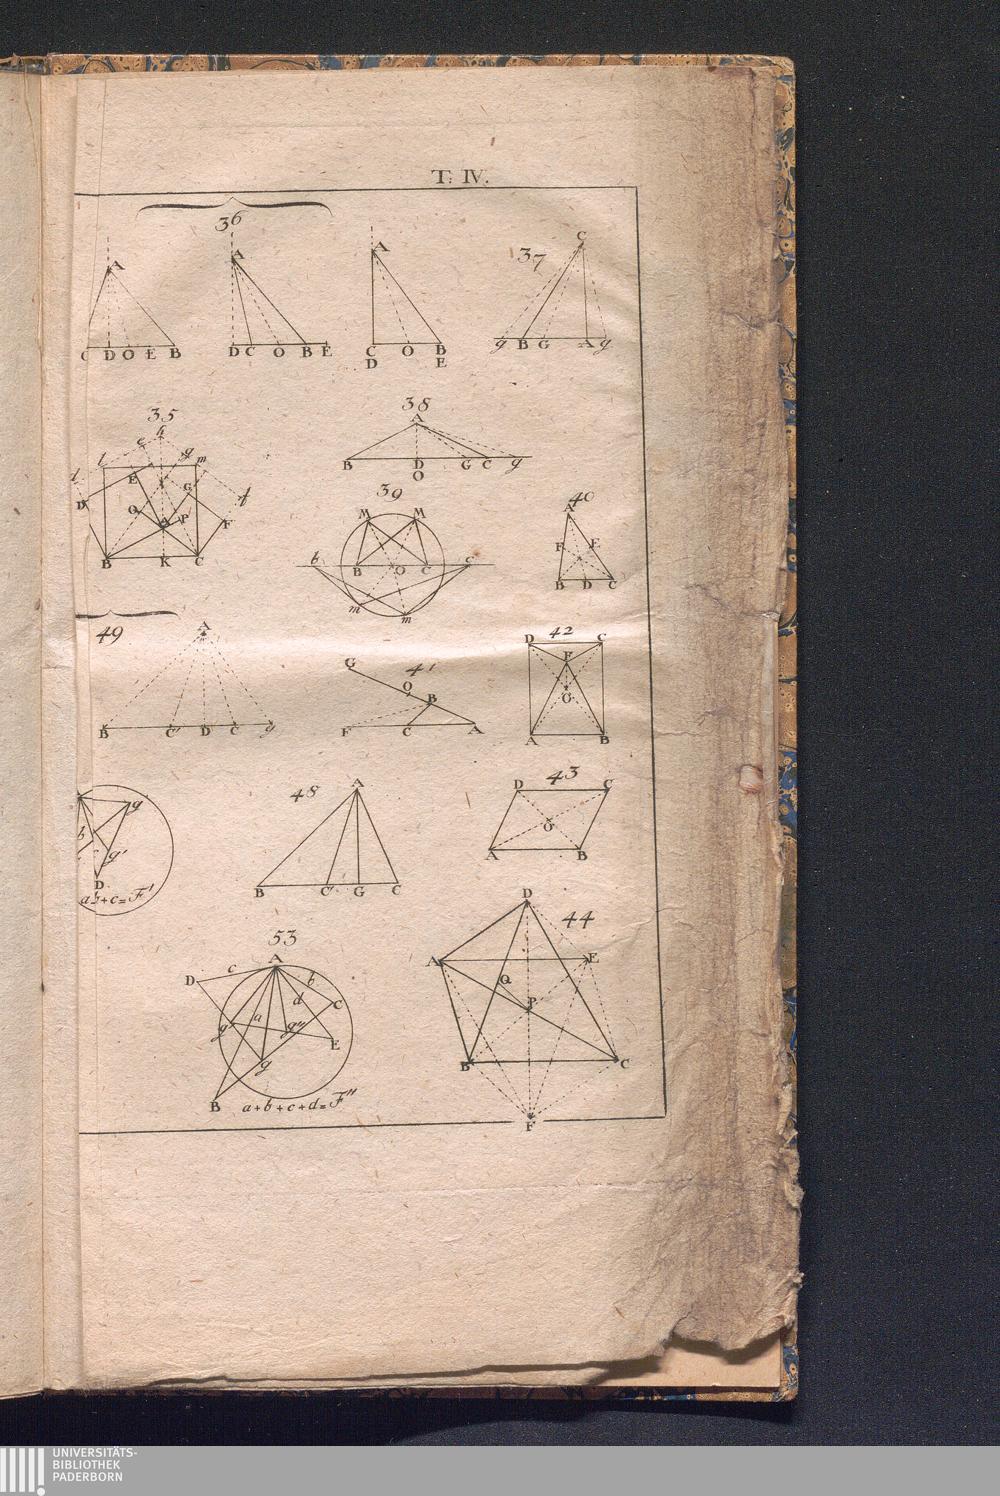 T: IV.
36
A
C D O E B
A
D C O B E
A
C O B
D E
37
C
g B G A g
35
h
e g
l m
E
d G f
D Q A P F
B K C
38
A
B D G C g
O
39
M M
b B O C c
m m
40
A
F E
B D C
49
A
B C' D C g
41
G
O
B
F C A
42
D C
F
G
A B
g
b
g'
D
a+b+c=F'
48
A
B C' G C
43
D C
O
A B
53
A
D c b
d C
g a g''
E
g
B
a+b+c+d=F''
44
D
A E
Q
P
B C
F
UNIVERSITÄTS-
BIBLIOTHEK
PADERBORN